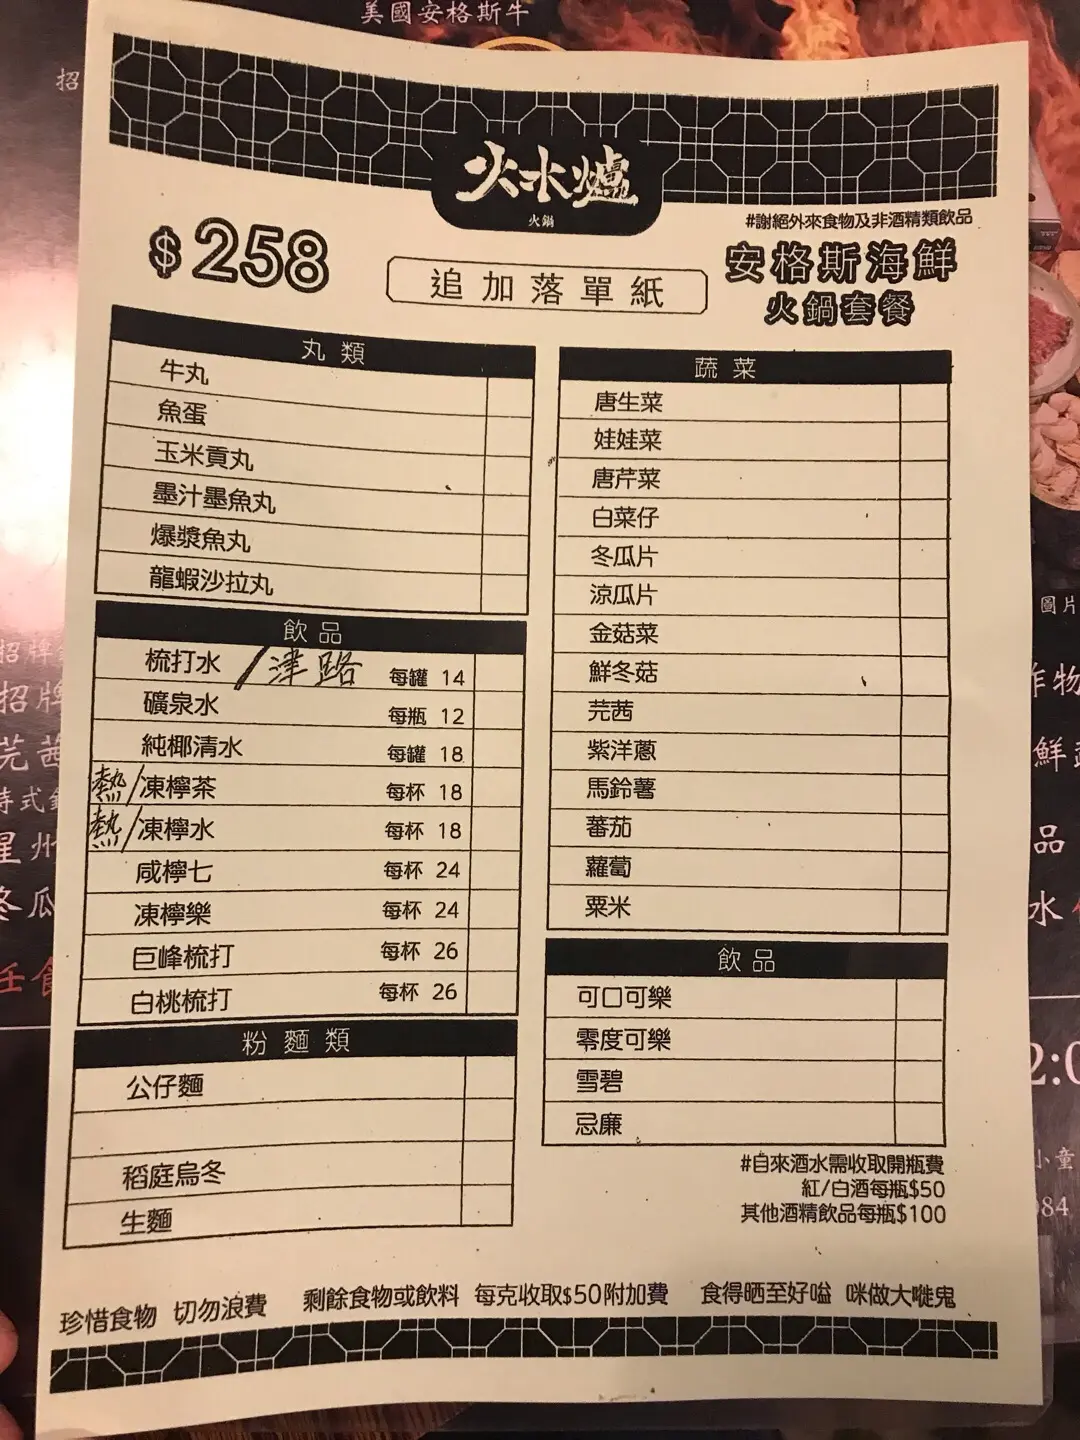 美國安格斯牛
招
火水爐
火鍋
#謝絕外來食物及非酒精類飲品
$258
追加落單紙
安格斯海鮮
火鍋套餐
丸類
牛丸
魚蛋
玉米貢丸
墨汁墨魚丸
爆漿魚丸
龍蝦沙拉丸
飲品
梳打水 /津路 每罐 14
礦泉水 每瓶 12
純椰清水 每罐 18
熱/凍檸茶 每杯 18
熱/凍檸水 每杯 18
咸檸七 每杯 24
凍檸樂 每杯 24
巨峰梳打 每杯 26
白桃梳打 每杯 26
粉麵類
公仔麵
稻庭烏冬
生麵
蔬菜
唐生菜
娃娃菜
唐芹菜
白菜仔
冬瓜片
涼瓜片
金菇菜
鮮冬菇
芫茜
紫洋蔥
馬鈴薯
蕃茄
蘿蔔
粟米
飲品
可口可樂
零度可樂
雪碧
忌廉
#自來酒水需收取開瓶費
紅/白酒每瓶$50
其他酒精飲品每瓶$100
珍惜食物 切勿浪費 剩餘食物或飲料 每克收取$50附加費 食得晒至好嗌 咪做大嘥鬼
招牌
招牌
芫茜
星州
冬瓜
圖片
作物
鮮
品
水
2:0
小童
084